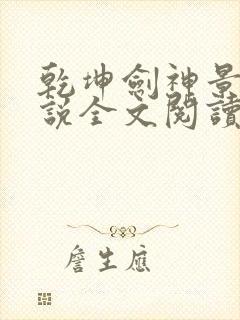 乾坤劍神景
說全文閱讀
詹生應